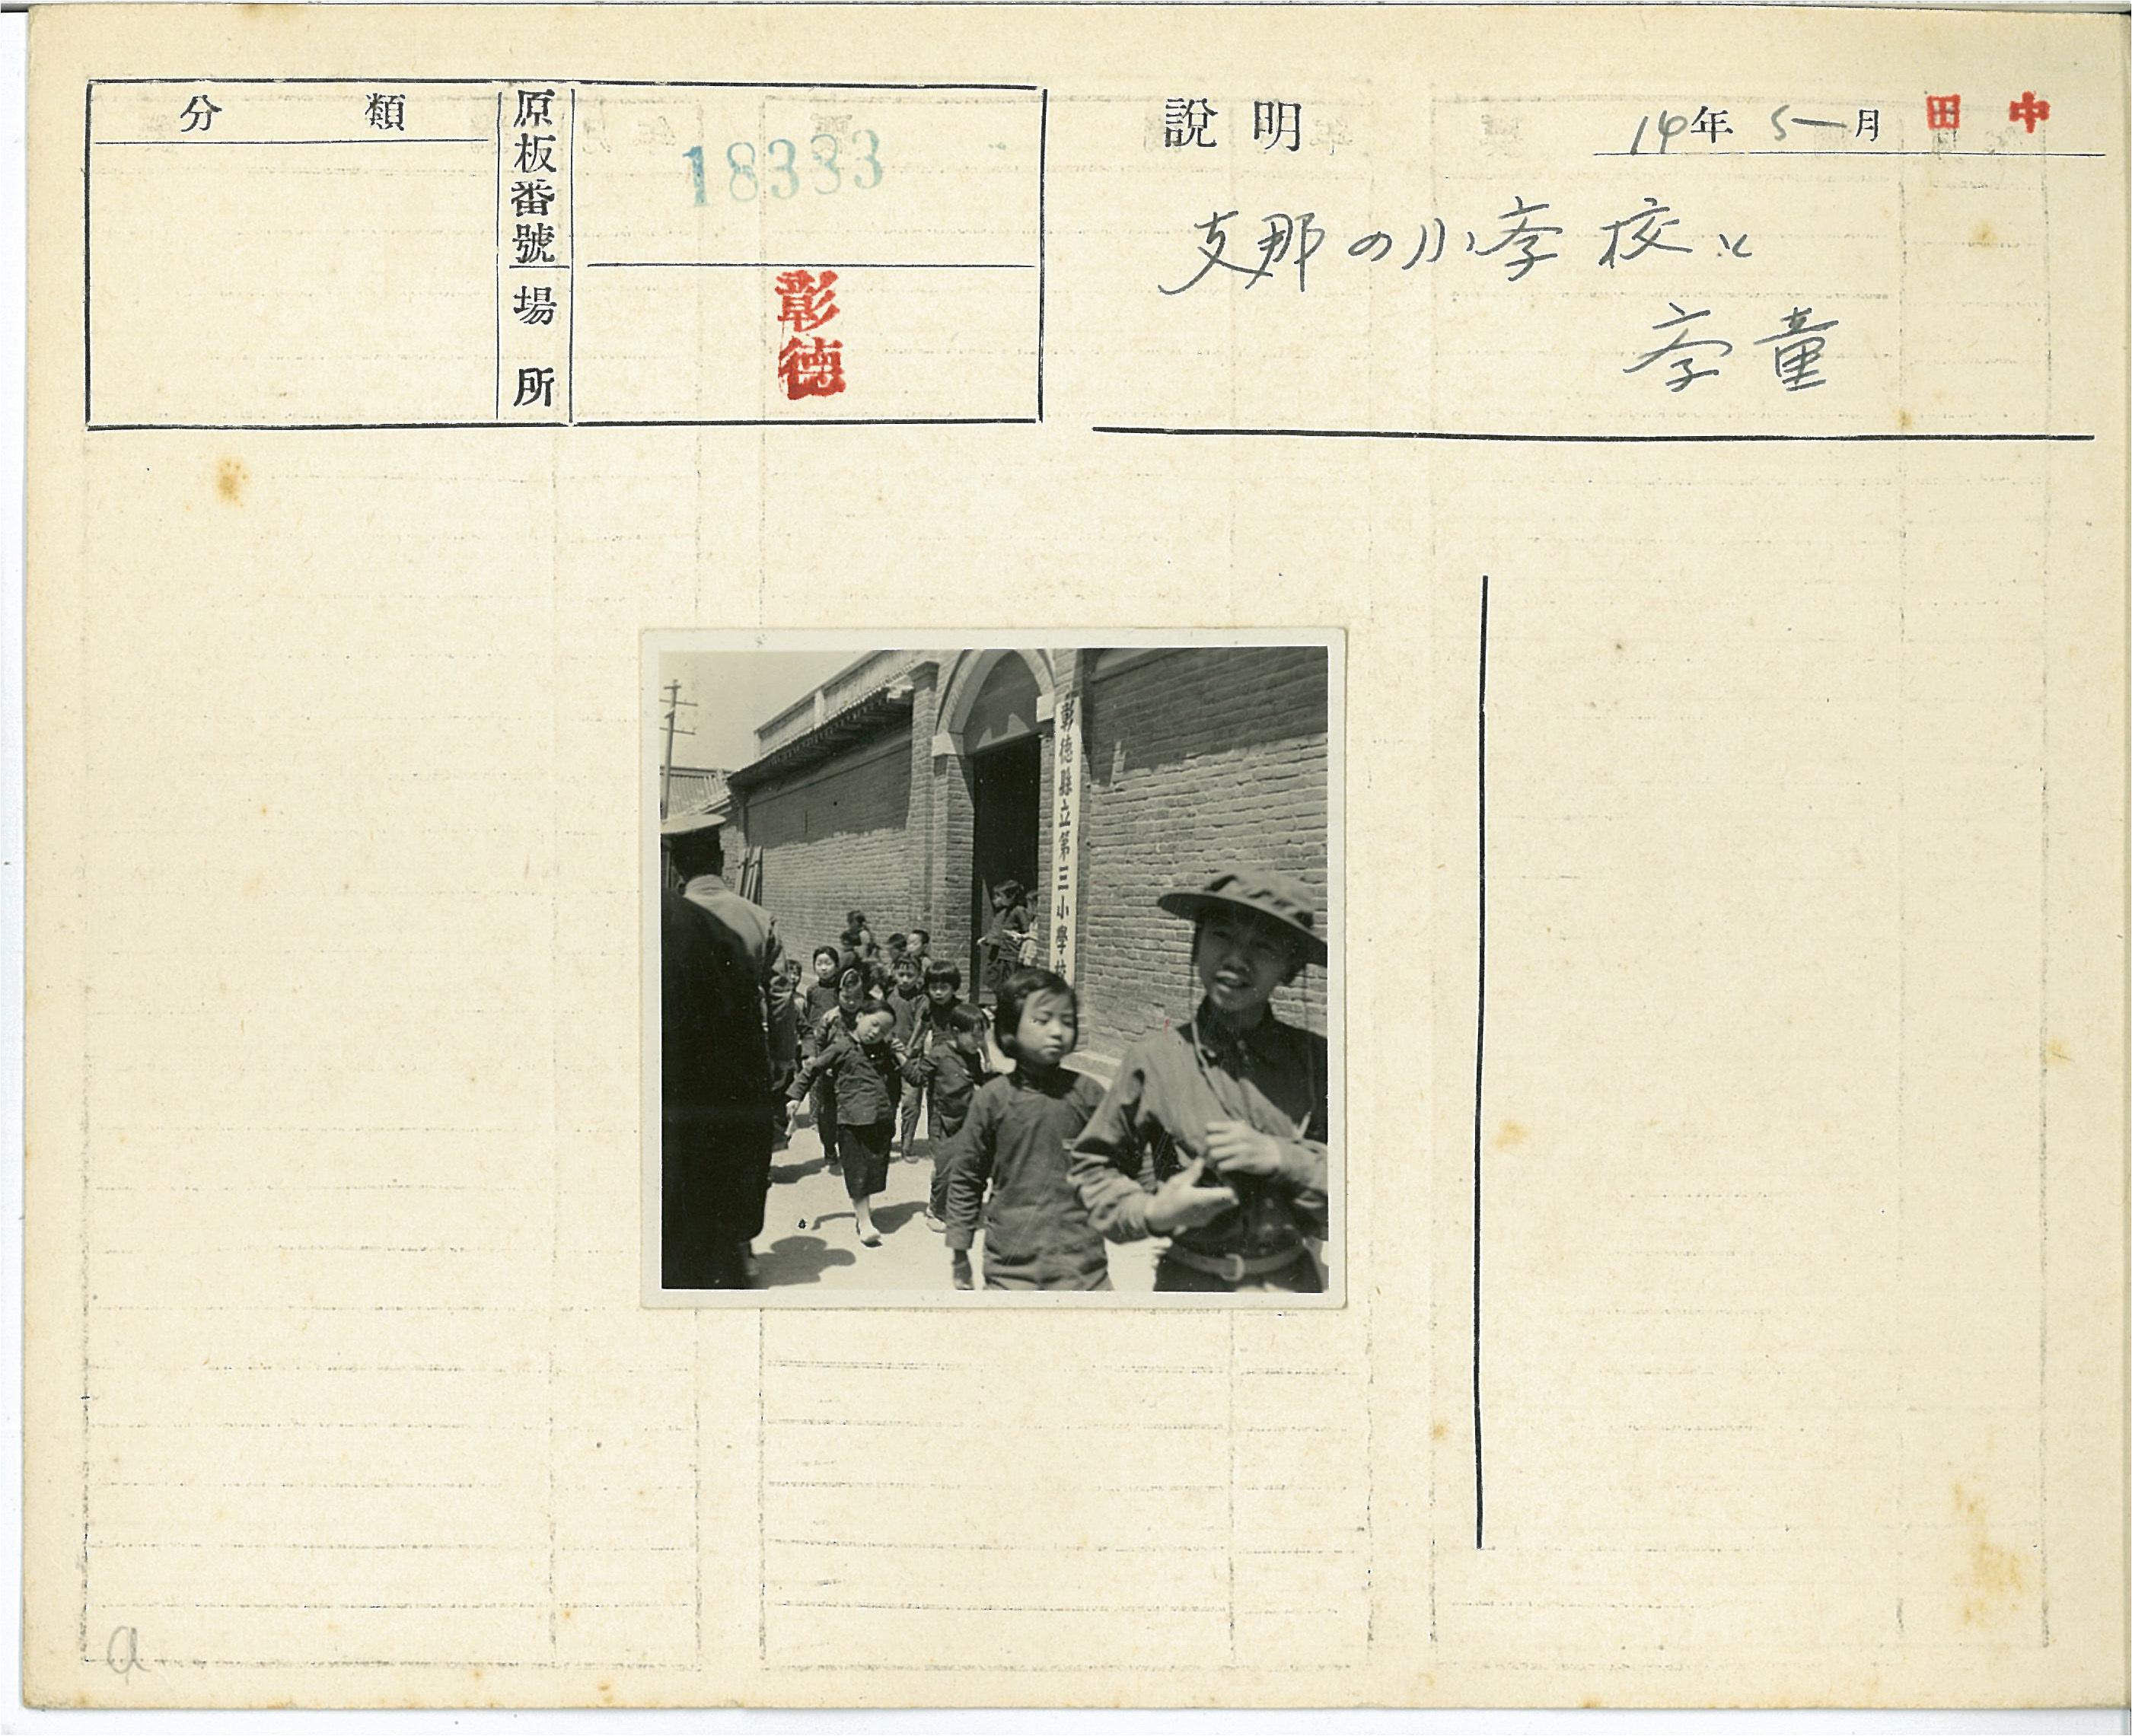 分類
原板番號
18383
場所
彰德
說明
14年 5月 田中
支那の小学校と
学童
彰德縣立第三小學校
a